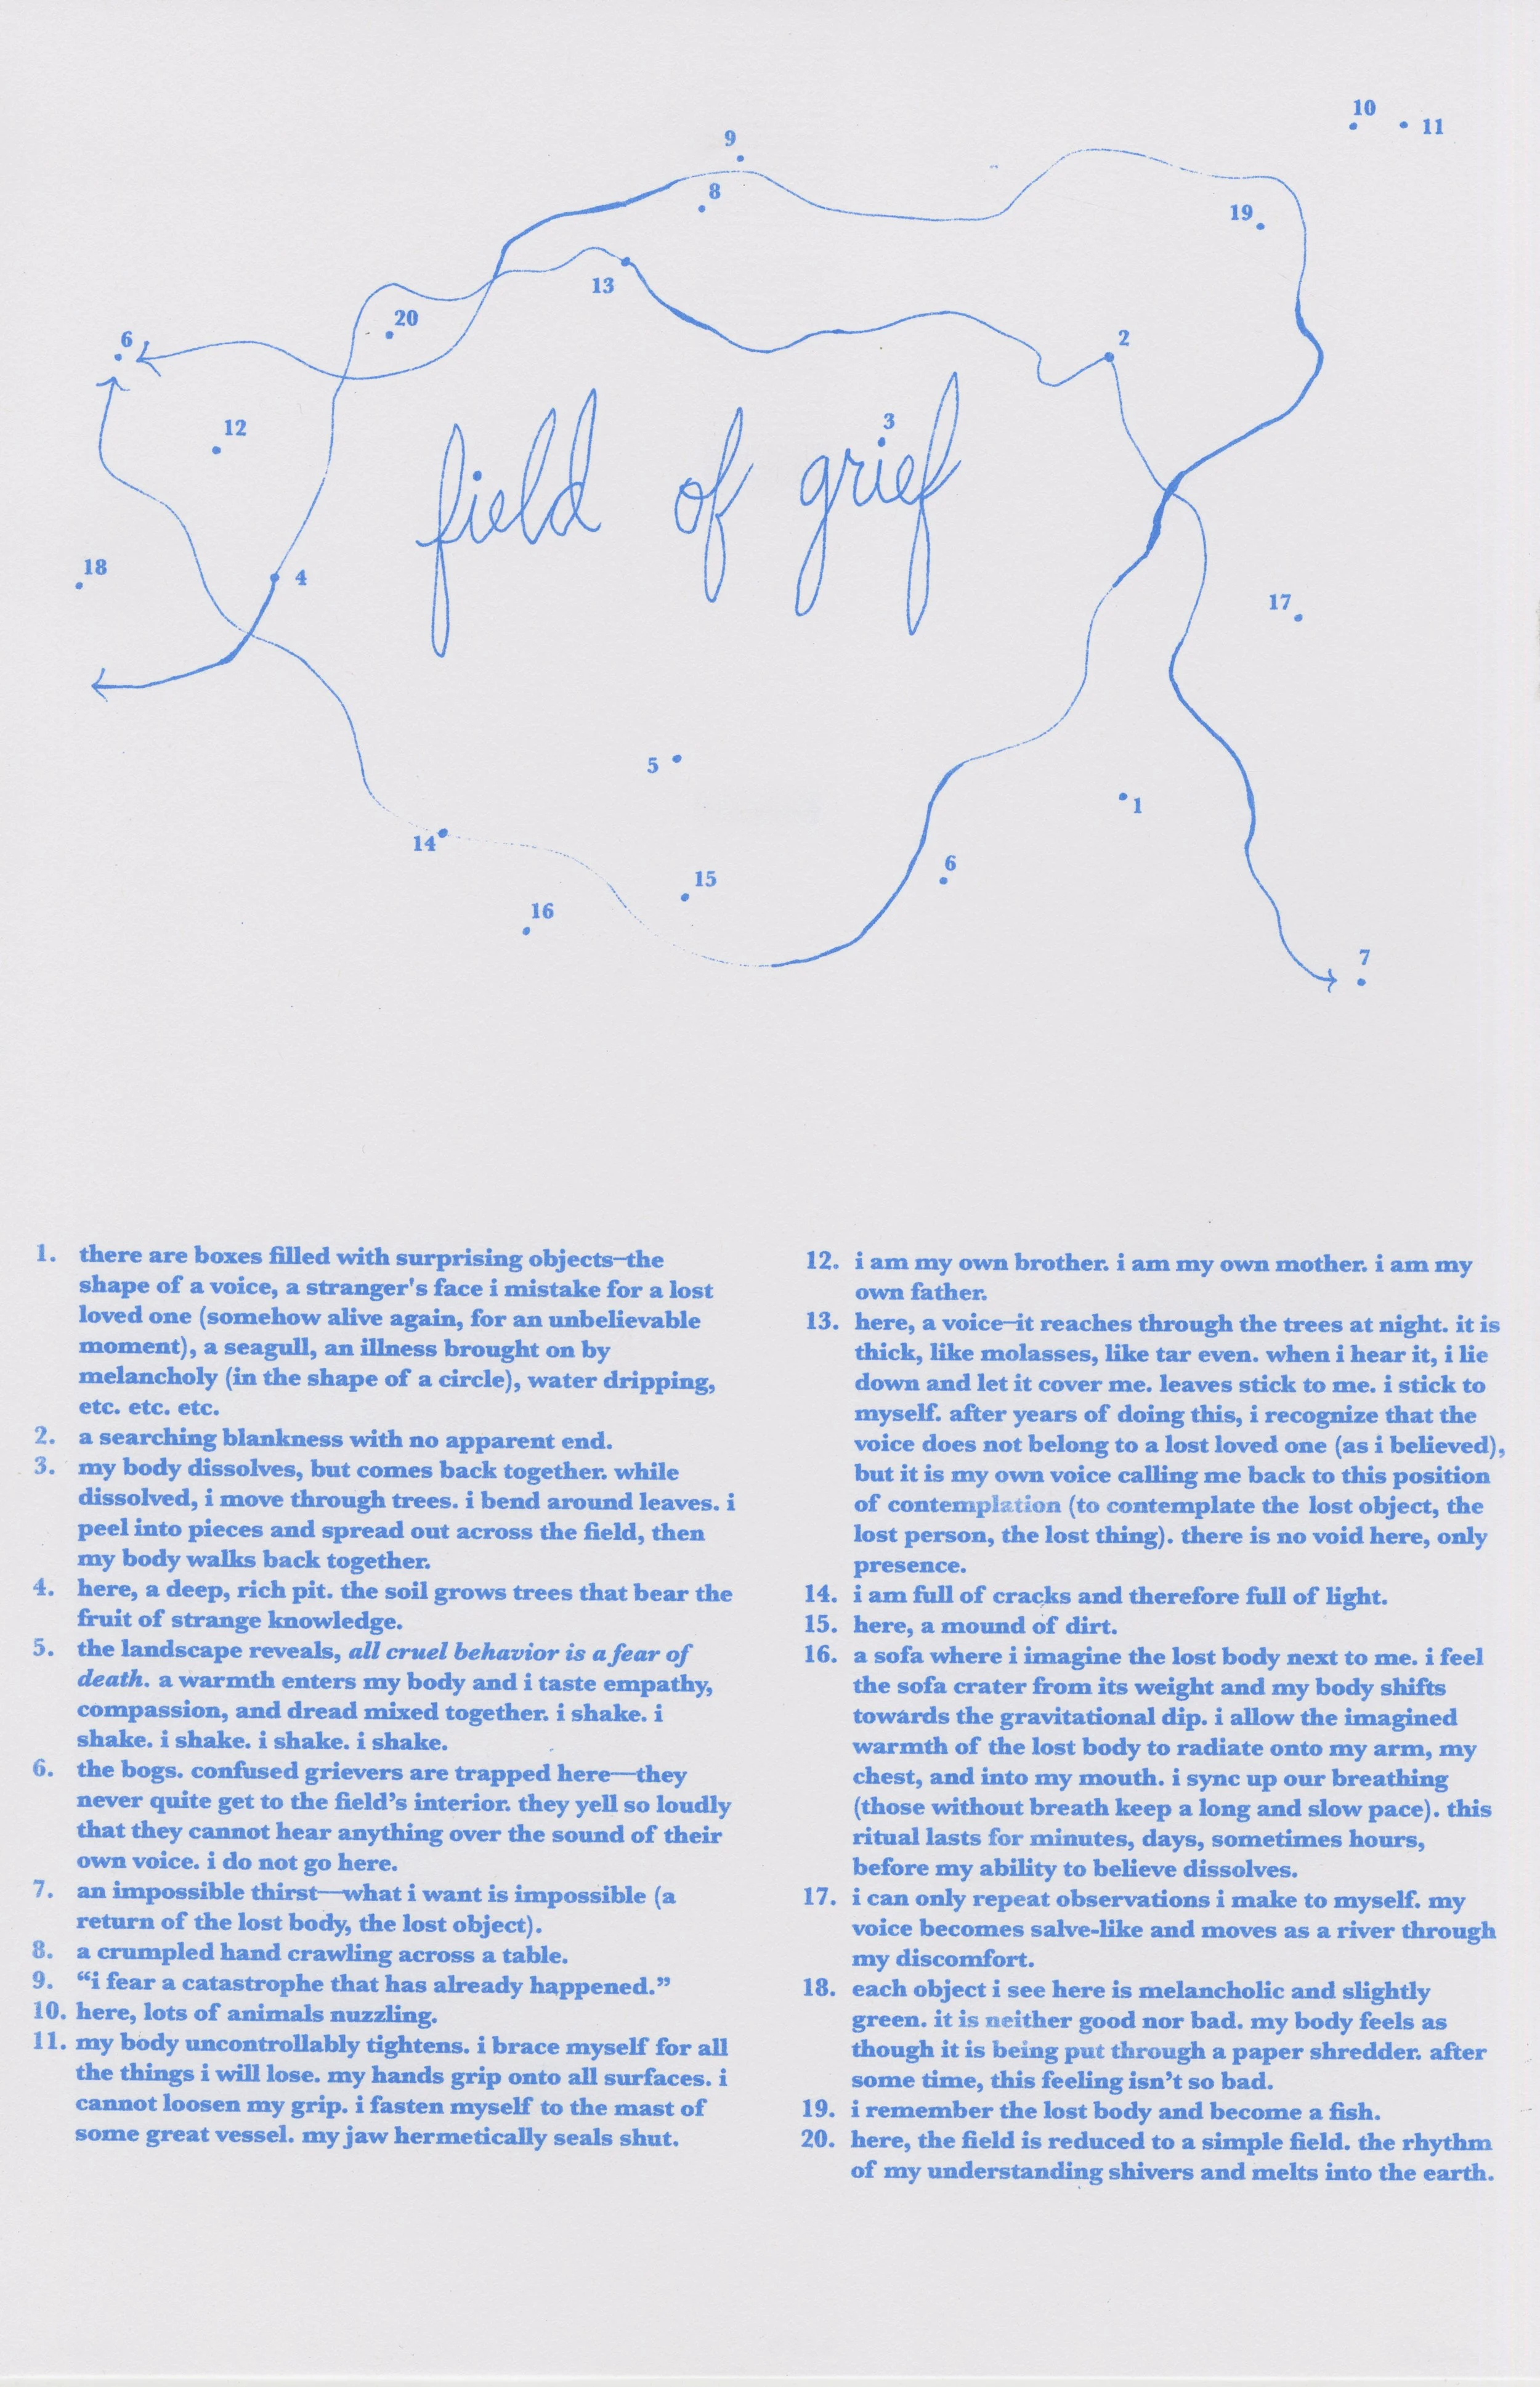 10
11
9
8
19
13
20
2
6
3
12
field of grief
18
4
17
5
1
14
6
15
16
7
1. there are boxes filled with surprising objects—the
shape of a voice, a stranger's face i mistake for a lost
loved one (somehow alive again, for an unbelievable
moment), a seagull, an illness brought on by
melancholy (in the shape of a circle), water dripping,
etc. etc. etc.
2. a searching blankness with no apparent end.
3. my body dissolves, but comes back together. while
dissolved, i move through trees. i bend around leaves. i
peel into pieces and spread out across the field, then
my body walks back together.
4. here, a deep, rich pit. the soil grows trees that bear the
fruit of strange knowledge.
5. the landscape reveals, all cruel behavior is a fear of
death. a warmth enters my body and i taste empathy,
compassion, and dread mixed together. i shake. i
shake. i shake. i shake. i shake.
6. the bogs. confused grievers are trapped here—they
never quite get to the field’s interior. they yell so loudly
that they cannot hear anything over the sound of their
own voice. i do not go here.
7. an impossible thirst—what i want is impossible (a
return of the lost body, the lost object).
8. a crumpled hand crawling across a table.
9. “i fear a catastrophe that has already happened.”
10. here, lots of animals nuzzling.
11. my body uncontrollably tightens. i brace myself for all
the things i will lose. my hands grip onto all surfaces. i
cannot loosen my grip. i fasten myself to the mast of
some great vessel. my jaw hermetically seals shut.
12. i am my own brother. i am my own mother. i am my
own father.
13. here, a voice—it reaches through the trees at night. it is
thick, like molasses, like tar even. when i hear it, i lie
down and let it cover me. leaves stick to me. i stick to
myself. after years of doing this, i recognize that the
voice does not belong to a lost loved one (as i believed),
but it is my own voice calling me back to this position
of contemplation (to contemplate the lost object, the
lost person, the lost thing). there is no void here, only
presence.
14. i am full of cracks and therefore full of light.
15. here, a mound of dirt.
16. a sofa where i imagine the lost body next to me. i feel
the sofa crater from its weight and my body shifts
towards the gravitational dip. i allow the imagined
warmth of the lost body to radiate onto my arm, my
chest, and into my mouth. i sync up our breathing
(those without breath keep a long and slow pace). this
ritual lasts for minutes, days, sometimes hours,
before my ability to believe dissolves.
17. i can only repeat observations i make to myself. my
voice becomes salve-like and moves as a river through
my discomfort.
18. each object i see here is melancholic and slightly
green. it is neither good nor bad. my body feels as
though it is being put through a paper shredder. after
some time, this feeling isn’t so bad.
19. i remember the lost body and become a fish.
20. here, the field is reduced to a simple field. the rhythm
of my understanding shivers and melts into the earth.